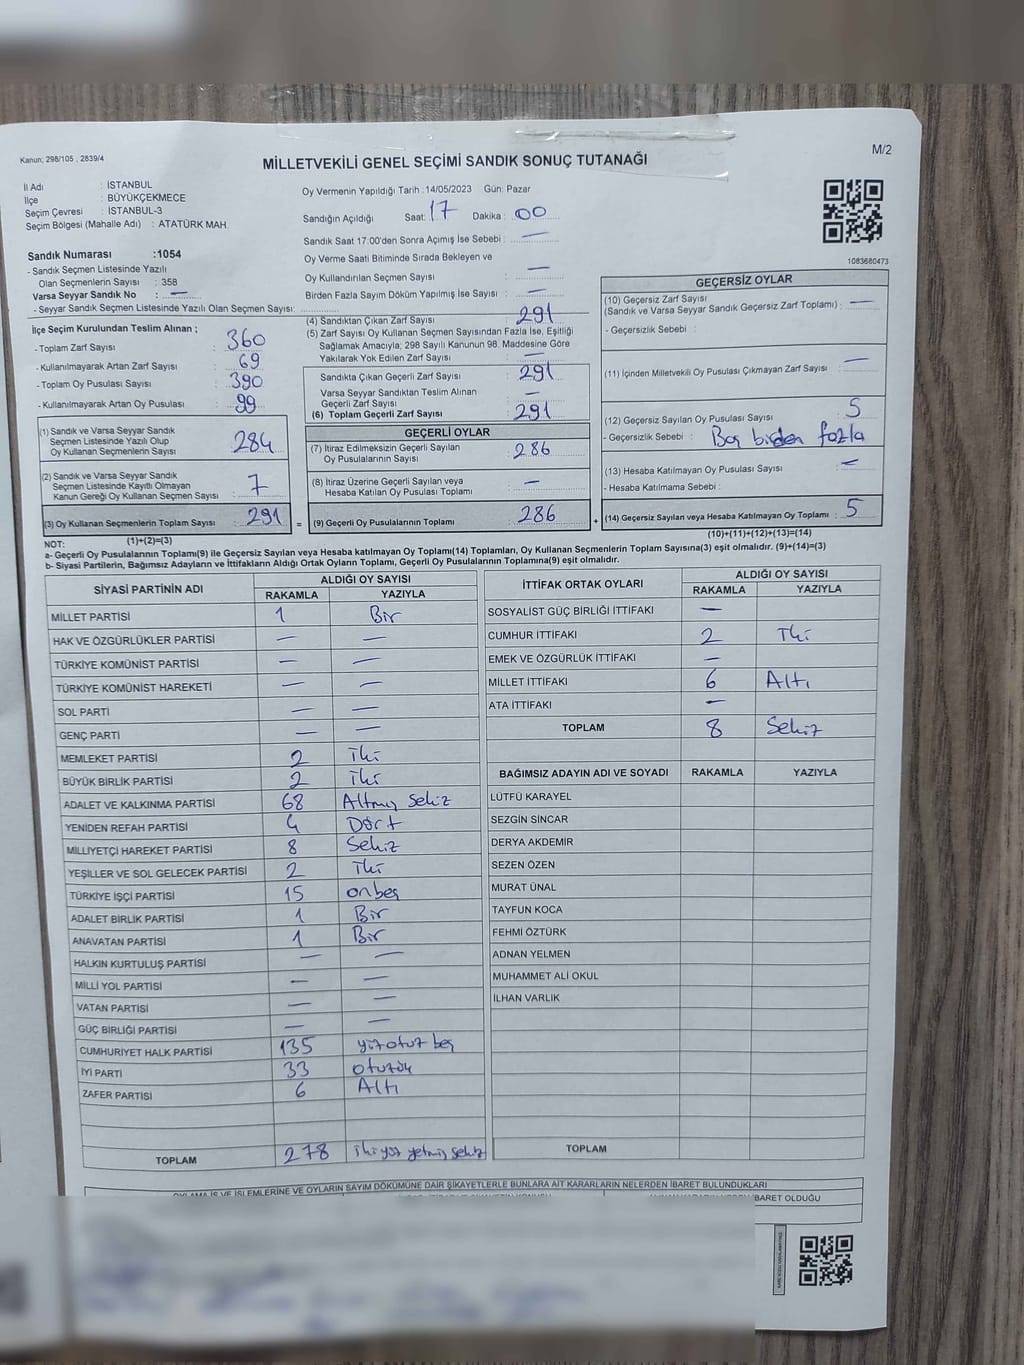 Kanun; 298/105 , 2839/4
M/2
MİLLETVEKİLİ GENEL SEÇİMİ SANDIK SONUÇ TUTANAĞI
İl Adı : İSTANBUL
İlçe : BÜYÜKÇEKMECE
Seçim Çevresi : İSTANBUL-3
Seçim Bölgesi (Mahalle Adı) : ATATÜRK MAH.
Sandık Numarası :1054
- Sandık Seçmen Listesinde Yazılı
Olan Seçmenlerin Sayısı : 358
Varsa Seyyar Sandık No : —
- Seyyar Sandık Seçmen Listesinde Yazılı Olan Seçmen Sayısı:
Oy Vermenin Yapıldığı Tarih : 14/05/2023 Gün: Pazar
Sandığın Açıldığı Saat: 17 Dakika : 00
Sandık Saat 17.00'den Sonra Açımış İse Sebebi : —
Oy Verme Saati Bitiminde Sırada Bekleyen ve
Oy Kullandırılan Seçmen Sayısı : —
Birden Fazla Sayım Döküm Yapılmış İse Sayısı : —
1083680473
İlçe Seçim Kurulundan Teslim Alınan ;
- Toplam Zarf Sayısı : 360
- Kullanılmayarak Artan Zarf Sayısı : 69
- Toplam Oy Pusulası Sayısı : 390
- Kullanılmayarak Artan Oy Pusulası : 99
(1) Sandık ve Varsa Seyyar Sandık
Seçmen Listesinde Yazılı Olup
Oy Kullanan Seçmenlerin Sayısı : 284
(2) Sandık ve Varsa Seyyar Sandık
Seçmen Listesinde Kayıtlı Olmayan
Kanun Gereği Oy Kullanan Seçmen Sayısı : 7
(3) Oy Kullanan Seçmenlerin Toplam Sayısı : 291
(1)+(2)=(3)
(4) Sandıktan Çıkan Zarf Sayısı : 291
(5) Zarf Sayısı Oy Kullanan Seçmen Sayısından Fazla İse, Eşitliği
Sağlamak Amacıyla; 298 Sayılı Kanunun 98. Maddesine Göre
Yakılarak Yok Edilen Zarf Sayısı : —
Sandıkta Çıkan Geçerli Zarf Sayısı : 291
Varsa Seyyar Sandıktan Teslim Alınan
Geçerli Zarf Sayısı : —
(6) Toplam Geçerli Zarf Sayısı : 291
GEÇERLİ OYLAR
(7) İtiraz Edilmeksizin Geçerli Sayılan
Oy Pusulalarının Sayısı : 286
(8) İtiraz Üzerine Geçerli Sayılan veya
Hesaba Katılan Oy Pusulası Toplamı : —
= (9) Geçerli Oy Pusulalarının Toplamı : 286 +
GEÇERSİZ OYLAR
(10) Geçersiz Zarf Sayısı
(Sandık ve Varsa Seyyar Sandık Geçersiz Zarf Toplamı) : —
- Geçersizlik Sebebi :
(11) İçinden Milletvekili Oy Pusulası Çıkmayan Zarf Sayısı : —
(12) Geçersiz Sayılan Oy Pusulası Sayısı : 5
- Geçersizlik Sebebi : Boş birden fazla
(13) Hesaba Katılmayan Oy Pusulası Sayısı : —
- Hesaba Katılmama Sebebi :
(14) Geçersiz Sayılan veya Hesaba Katılmayan Oy Toplamı : 5
(10)+(11)+(12)+(13)=(14)
NOT:
a- Geçerli Oy Pusulalarının Toplamı(9) ile Geçersiz Sayılan veya Hesaba katılmayan Oy Toplamı(14) Toplamları, Oy Kullanan Seçmenlerin Toplam Sayısına(3) eşit olmalıdır. (9)+(14)=(3)
b- Siyasi Partilerin, Bağımsız Adayların ve İttifakların Aldığı Ortak Oyların Toplamı, Geçerli Oy Pusulalarının Toplamına(9) eşit olmalıdır.
SİYASİ PARTİNİN ADI ALDIĞI OY SAYISI
RAKAMLA YAZIYLA
MİLLET PARTİSİ 1 Bir
HAK VE ÖZGÜRLÜKLER PARTİSİ — —
TÜRKİYE KOMÜNİST PARTİSİ — —
TÜRKİYE KOMÜNİST HAREKETİ — —
SOL PARTİ — —
GENÇ PARTİ — —
MEMLEKET PARTİSİ 2 İki
BÜYÜK BİRLİK PARTİSİ 2 İki
ADALET VE KALKINMA PARTİSİ 68 Altmış Sekiz
YENİDEN REFAH PARTİSİ 4 Dört
MİLLİYETÇİ HAREKET PARTİSİ 8 Sekiz
YEŞİLLER VE SOL GELECEK PARTİSİ 2 İki
TÜRKİYE İŞÇİ PARTİSİ 15 onbeş
ADALET BİRLİK PARTİSİ 1 Bir
ANAVATAN PARTİSİ 1 Bir
HALKIN KURTULUŞ PARTİSİ — —
MİLLİ YOL PARTİSİ — —
VATAN PARTİSİ — —
GÜÇ BİRLİĞİ PARTİSİ — —
CUMHURİYET HALK PARTİSİ 135 yüzotuz beş
İYİ PARTİ 33 otuzüç
ZAFER PARTİSİ 6 Altı
TOPLAM 278 ikiyüz yetmiş sekiz
İTTİFAK ORTAK OYLARI ALDIĞI OY SAYISI
RAKAMLA YAZIYLA
SOSYALİST GÜÇ BİRLİĞİ İTTİFAKI —
CUMHUR İTTİFAKI 2 İki
EMEK VE ÖZGÜRLÜK İTTİFAKI —
MİLLET İTTİFAKI 6 Altı
ATA İTTİFAKI —
TOPLAM 8 Sekiz
BAĞIMSIZ ADAYIN ADI VE SOYADI RAKAMLA YAZIYLA
LÜTFÜ KARAYEL
SEZGİN SİNCAR
DERYA AKDEMİR
SEZEN ÖZEN
MURAT ÜNAL
TAYFUN KOCA
FEHMİ ÖZTÜRK
ADNAN YELMEN
MUHAMMET ALİ OKUL
İLHAN VARLIK
TOPLAM
OYLAMA İŞ VE İŞLEMLERİNE VE OYLARIN SAYIM DÖKÜMÜNE DAİR ŞİKAYETLERLE BUNLARA AİT KARARLARIN NELERDEN İBARET BULUNDUKLARI
İBARET OLDUĞU